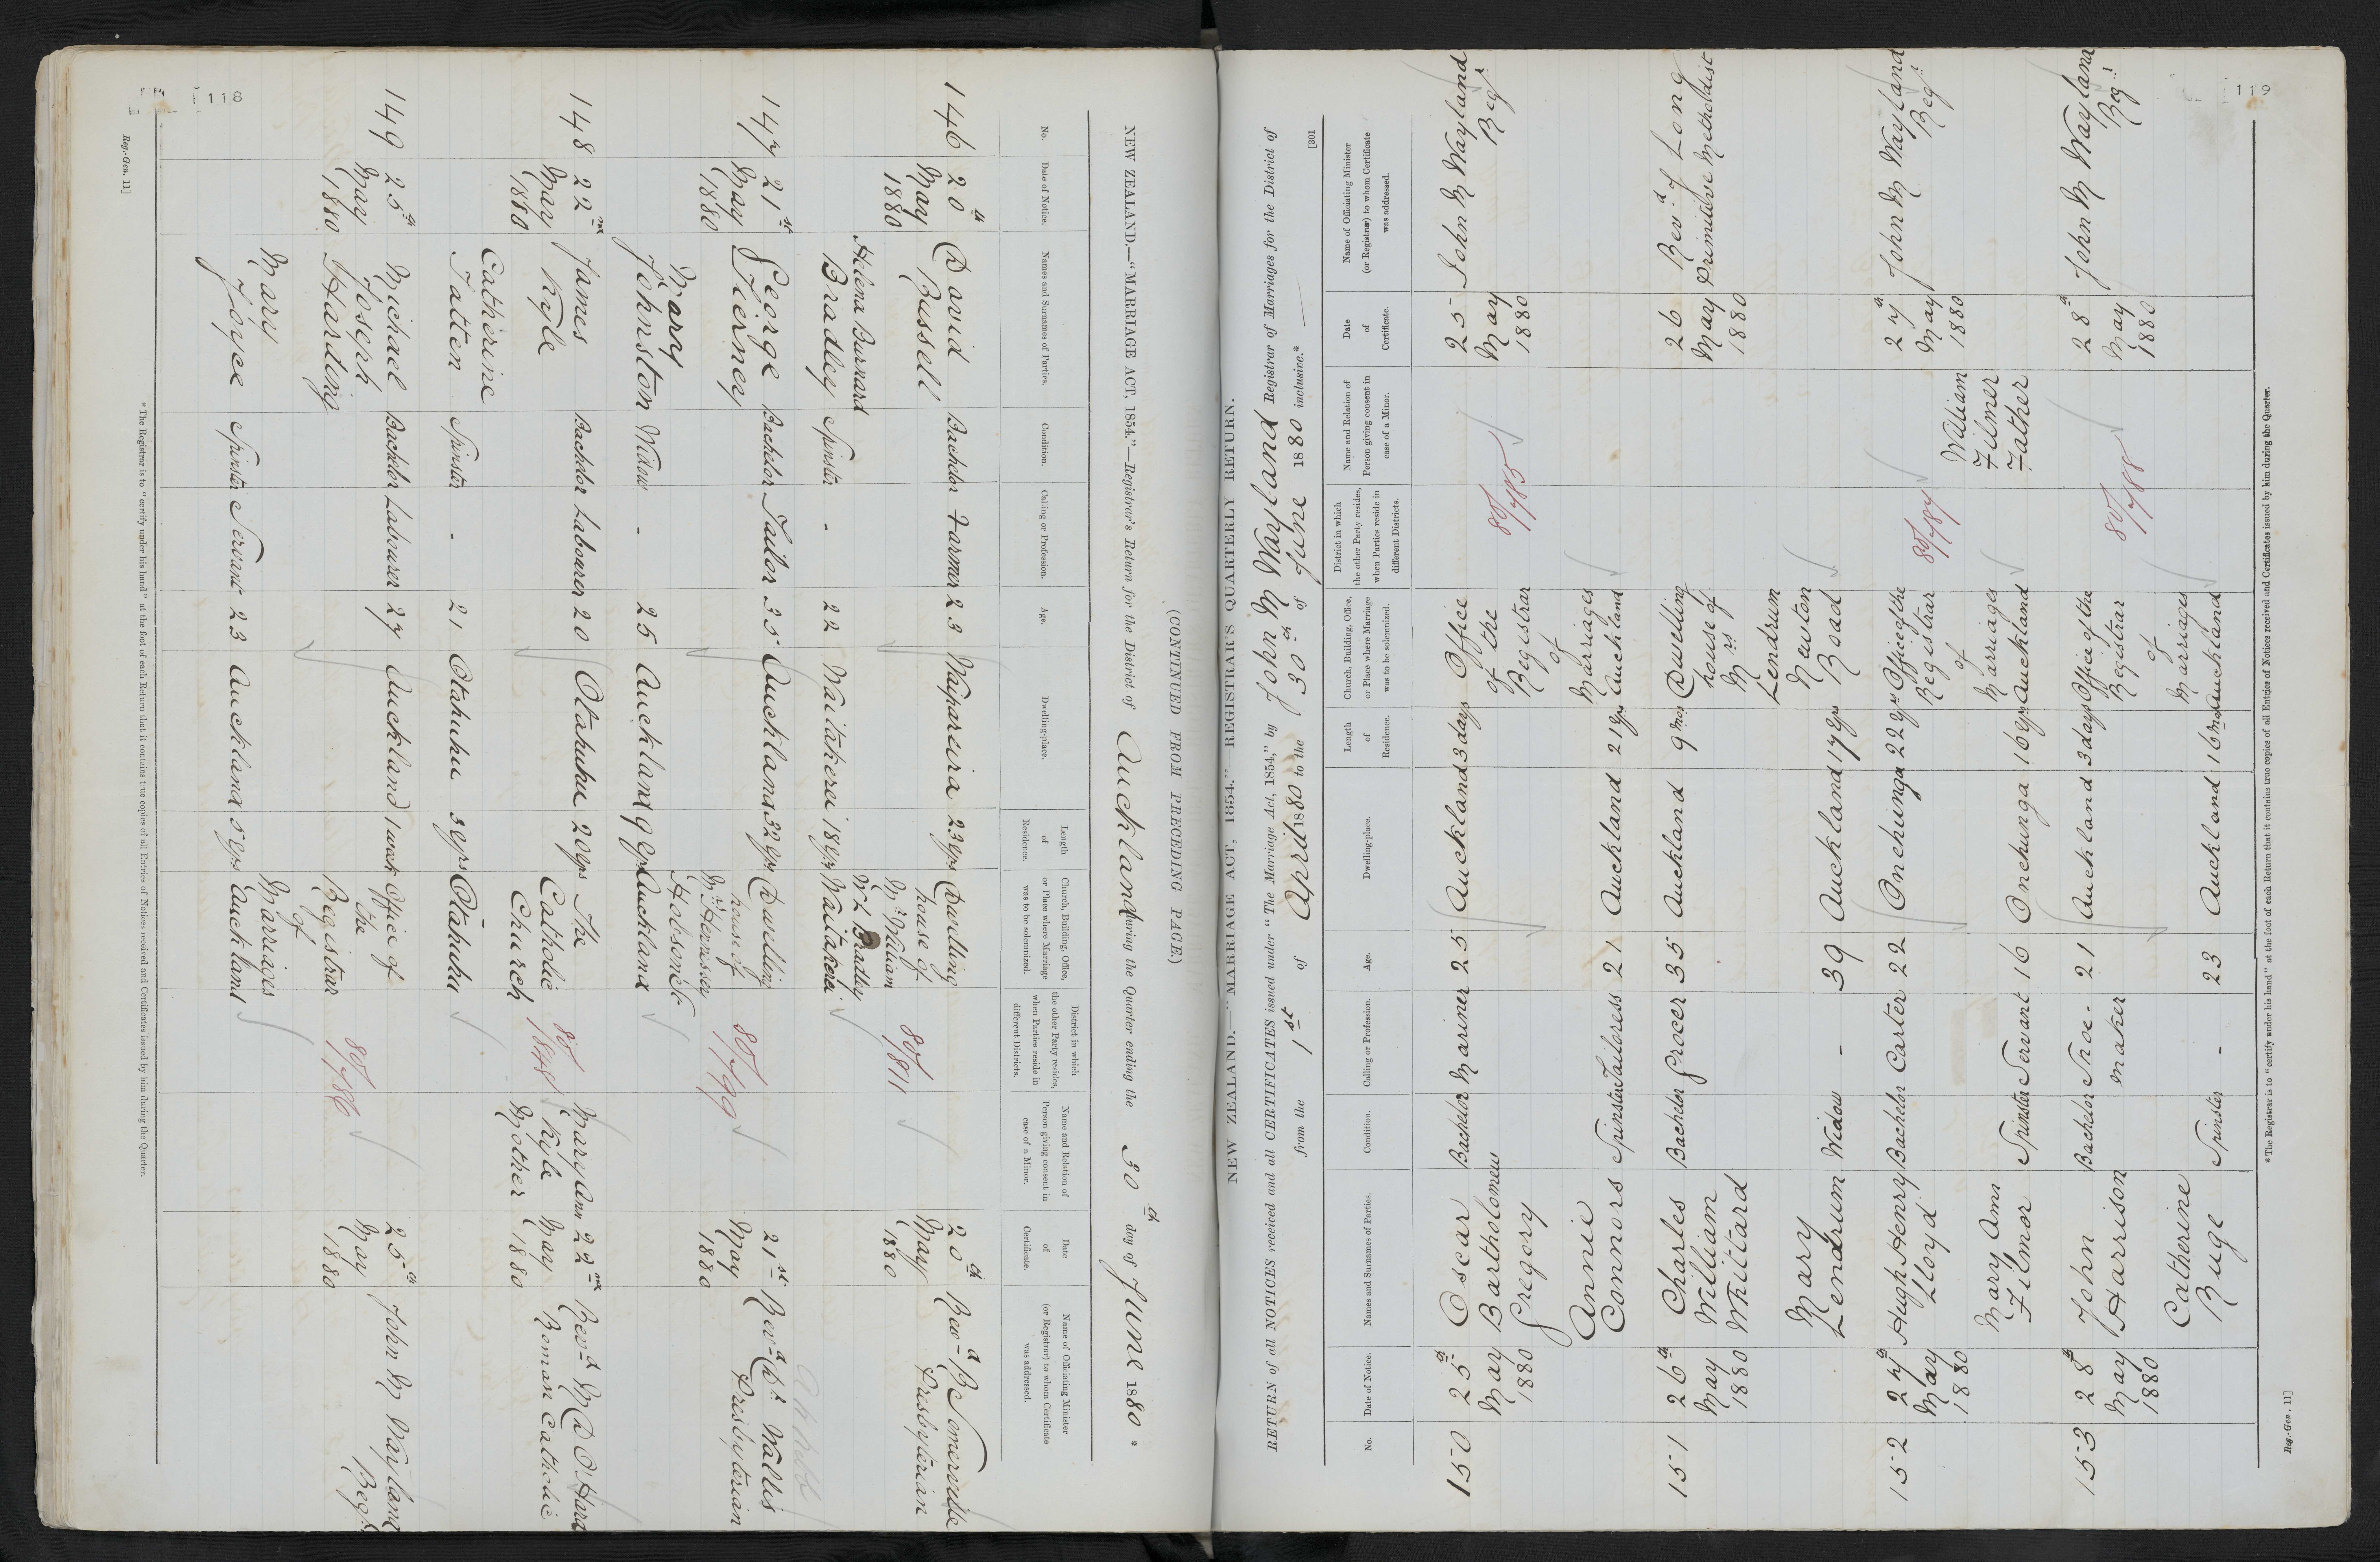 118
(CONTINUED FROM PRECEDING PAGE.)
NEW ZEALAND.—"MARRIAGE ACT, 1854."—Registrar's Return for the District of Auckland during the Quarter ending the 30th day of June 1880 *
No.
Date of Notice.
Names and Surnames of Parties.
Condition.
Calling or Profession.
Age.
Dwelling-place.
Length of Residence.
Church, Building, Office, or Place where Marriage was to be solemnized.
District in which the other Party resides, when Parties reside in different Districts.
Name and Relation of Person giving consent in case of a Minor.
Date of Certificate.
Name of Officiating Minister (or Registrar) to whom Certificate was addressed.
146
20th May 1880
David Russell
Bachelor
Farmer
23
Waipareira
23 yrs
Dwelling house of Mr William Wt Bradley Waitakerei
80/1811
20th May 1880
Revd R Somerville Presbyterian
Helena Burnard Bradley
Spinster
-
22
Waitakerei
18 yrs
147
21st May 1880
George Tierney
Bachelor
Tailor
35
Auckland
32 yrs
Dwelling house of Mrs Hennessey Hobson St Auckland
80/1799
21st May 1880
Revd Dr Wallis Presbyterian
Mary Johnston
Widow
-
25
Auckland
9 yrs
148
22nd May 1880
James Kyle
Bachelor
Labourer
20
Otahuhu
20 yrs
The Catholic Church Otahuhu
80/1848
Mary Ann Kyle Mother
22nd May 1880
Revd M D O'Hara Roman Catholic
Catherine Tatten
Spinster
-
21
Otahuhu
3 yrs
149
25th May 1880
Michael Joseph Harding
Bachelor
Labourer
27
Auckland
1 week
Office of the Registrar of Marriages Auckland
80/1786
25th May 1880
John M Wayland Regr
Mary Joyce
Spinster
Servant
23
Auckland
5 yrs
* The Registrar is to "certify under his hand" at the foot of each Return that it contains true copies of all Entries of Notices received and Certificates issued by him during the Quarter.
Reg.-Gen. 11]
119
NEW ZEALAND.—"MARRIAGE ACT, 1854."—REGISTRAR'S QUARTERLY RETURN.
RETURN of all NOTICES received and all CERTIFICATES issued under "The Marriage Act, 1854," by John M Wayland Registrar of Marriages for the District of
from the 1st of April 1880 to the 30th of June 1880 inclusive.*
[301
No.
Date of Notice.
Names and Surnames of Parties.
Condition.
Calling or Profession.
Age.
Dwelling-place.
Length of Residence.
Church, Building, Office, or Place where Marriage was to be solemnized.
District in which the other Party resides, when Parties reside in different Districts.
Name and Relation of Person giving consent in case of a Minor.
Date of Certificate.
Name of Officiating Minister (or Registrar) to whom Certificate was addressed.
150
25th May 1880
Oscar Bartholomew Gregory
Bachelor
Mariner
25
Auckland
3 days
Office of the Registrar of Marriages Auckland
80/1785
25 May 1880
John M Wayland Regr
Annie Connors
Spinster
Tailoress
21
Auckland
21 yrs
151
26th May 1880
Charles William Whittard
Bachelor
Grocer
35
Auckland
9 mos
Dwelling house of Mrs Lendrum Newton Road
26 May 1880
Revd J Long Primitive Methodist
Mary Lendrum
Widow
-
39
Auckland
17 yrs
152
27th May 1880
Hugh Henry Lloyd
Bachelor
Carter
22
Onehunga
22 yrs
Office of the Registrar of Marriages Auckland
80/1787
William Filmer Father
27th May 1880
John M Wayland Regr
Mary Ann Filmor
Spinster
Servant
16
Onehunga
16 yrs
153
28th May 1880
John Harrison
Bachelor
Shoe-maker
21
Auckland
3 days
Office of the Registrar of Marriages Auckland
80/1788
28th May 1880
John M Wayland Regr
Catherine Ruge
Spinster
-
23
Auckland
16 mos
* The Registrar is to "certify under his hand" at the foot of each Return that it contains true copies of all Entries of Notices received and Certificates issued by him during the Quarter.
Reg.-Gen. 11]